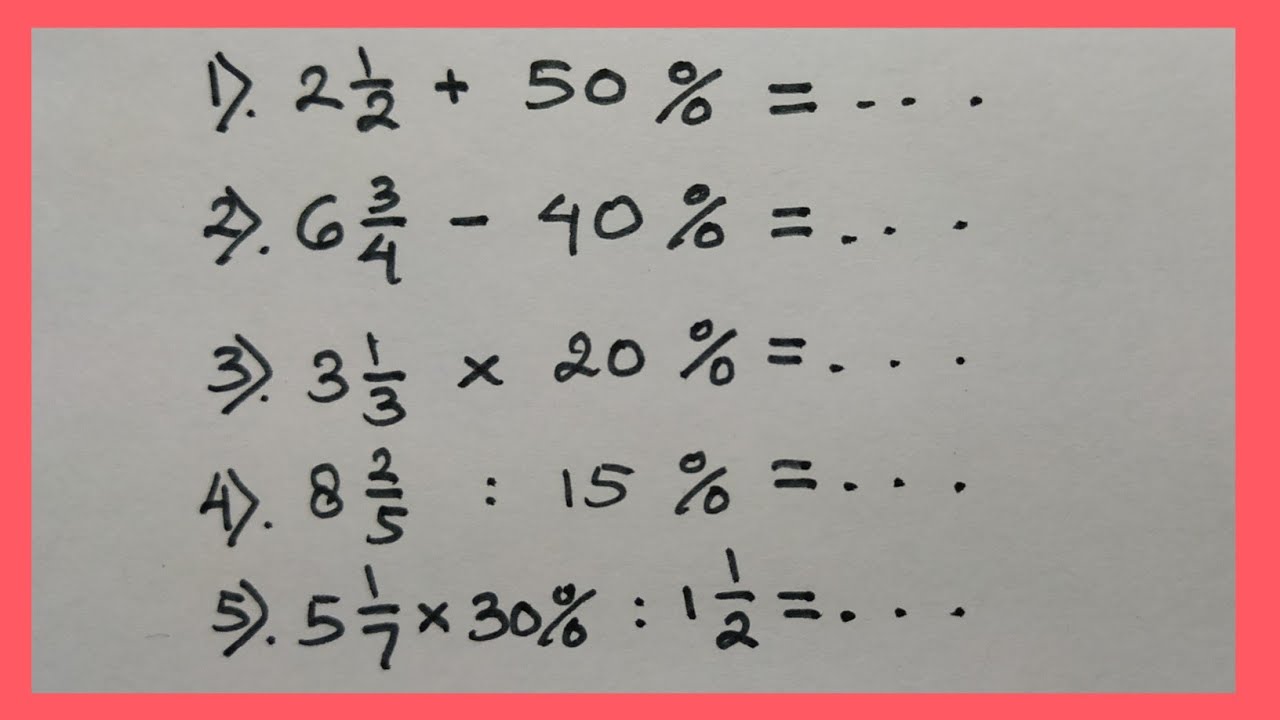 1). 2 1/2 + 50 % = ...
2). 6 3/4 - 40 % = ...
3). 3 1/3 × 20 % = ...
4). 8 2/5 : 15 % = ...
5). 5 1/7 × 30% : 1 1/2 = ...